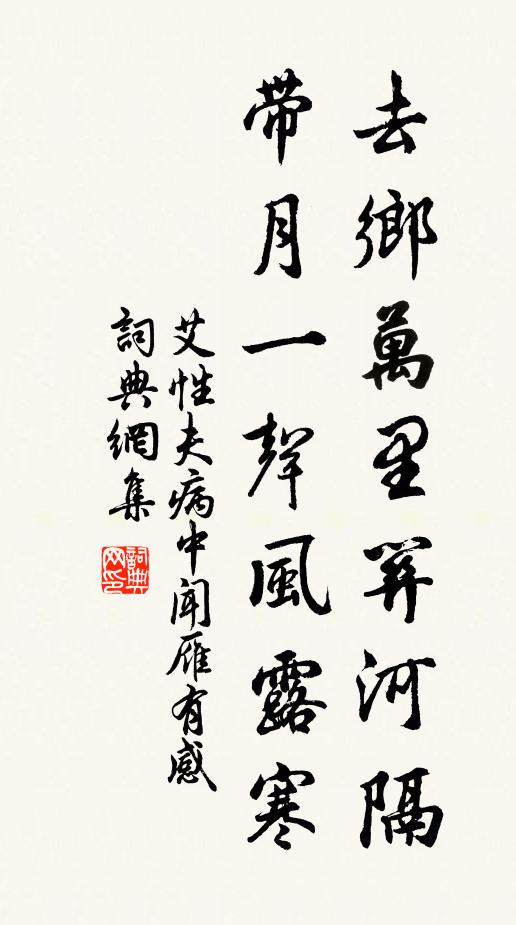 去鄉萬里關河隔
带月一聲風露寒
艾性夫病中闻雁有感
詞典網集
詞典网印